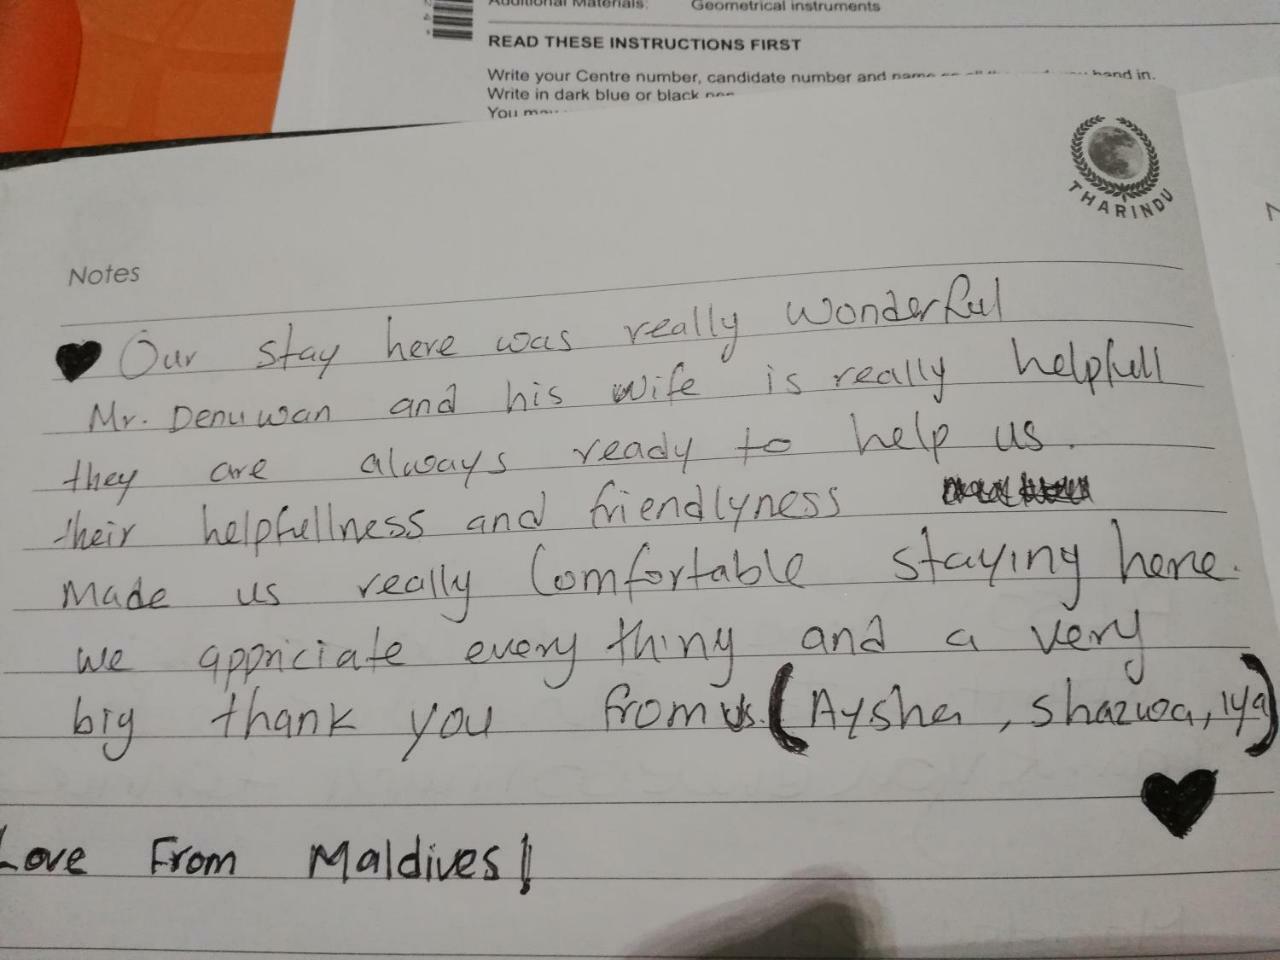 Additional Materials: Geometrical instruments
READ THESE INSTRUCTIONS FIRST
Write your Centre number, candidate number and name hand in.
Write in dark blue or black
You
THARINDU
Notes
Our stay here was really wonderful
Mr. Denuwan and his wife is really helpfull
they are always ready to help us.
their helpfullness and friendlyness
Made us really Comfortable staying here.
we appriciate every thing and a very
big thank you from us. (Aysha, Shazwa, iya)
Love From Maldives!